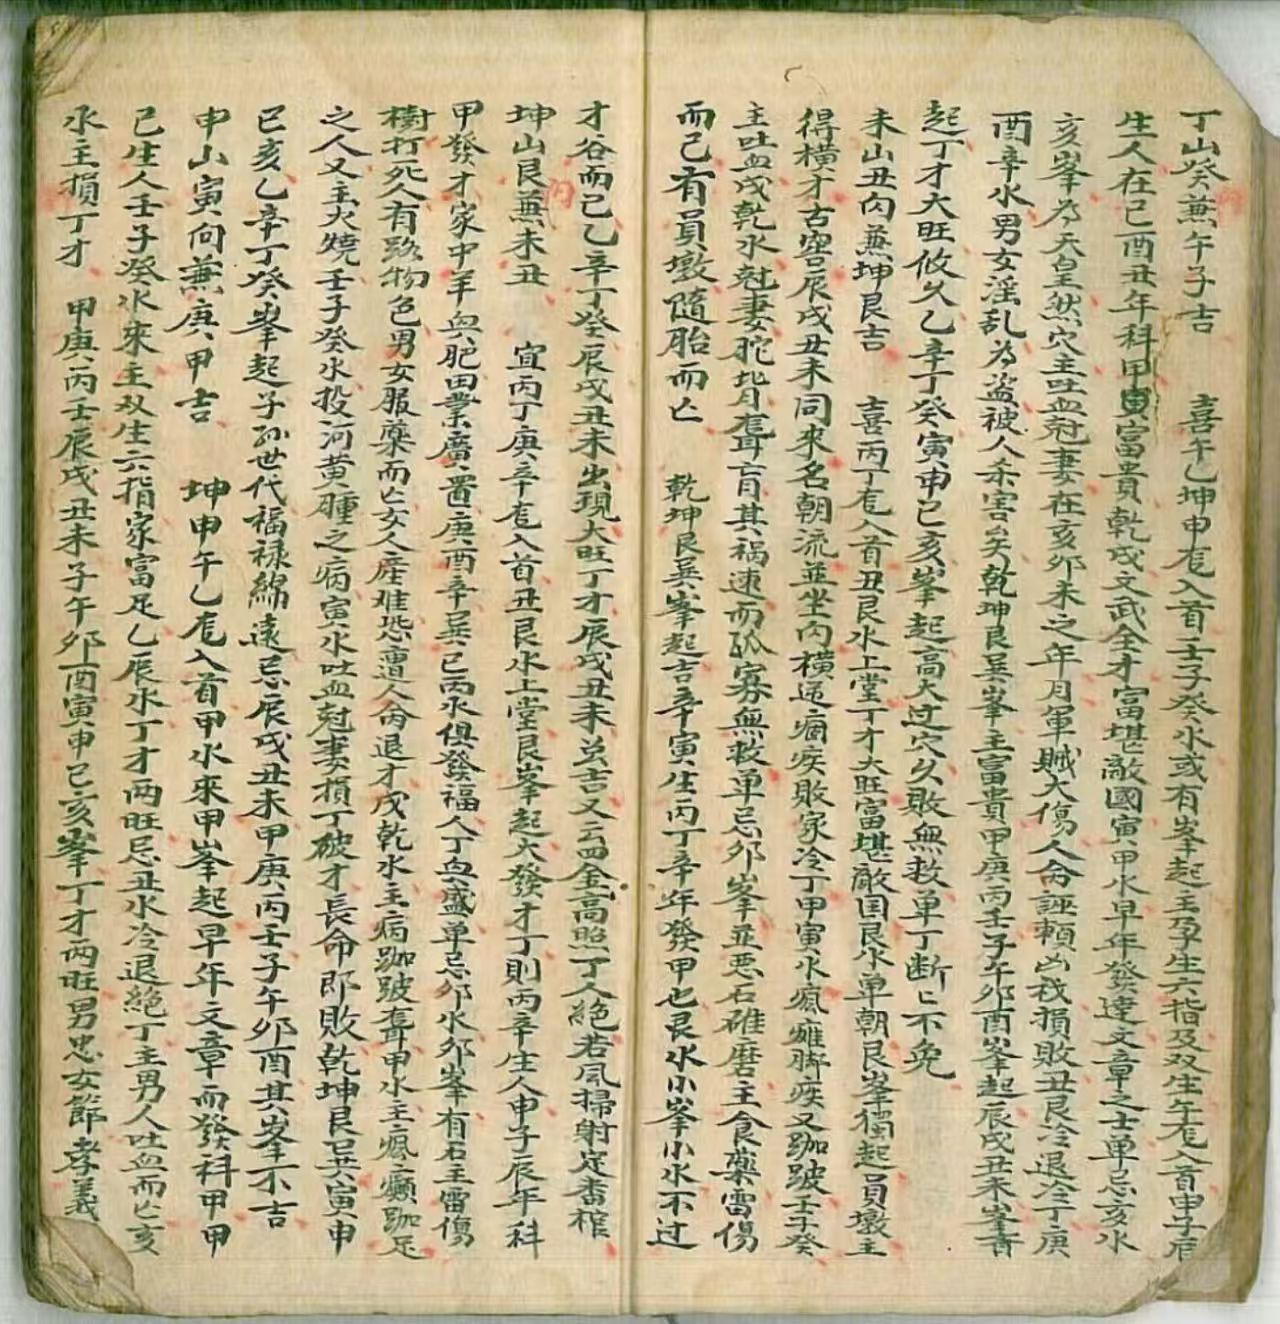 丁山癸兼午子吉　喜午乙坤申龙入首壬子癸水或有峯起主孕生六指及双生午龙入首申子辰
生人在已酉丑年科甲寅富貴乾戍文武全才富堪敵國寅甲水早年發達文章之士单忌亥水
亥峯為天皇然穴主吐血尅妻在亥卯未之年月軍賊大傷人命誣賴凶我損敗丑艮冷退冷丁庚
酉辛水男女淫乱為盗被人杀害矣乾坤艮巽峯主富貴甲庚丙壬子午卯酉峯起辰戍丑未峯青
起丁才大旺攸久乙辛丁癸寅申已亥峯起高大过穴久敗無救单丁断亡不免
未山丑向兼坤艮吉　喜丙丁龙入首丑艮水上堂丁才大旺富堪敵国艮水单朝艮峯獨起員墩主
得橫才古窖辰戍丑未同來名朝流並坐向橫逆痼疾敗家冷丁甲寅水瘋癱脚疾又跏跛壬子癸
主吐血戍乾水尅妻駝背聋盲其祸速而孤寡無救单忌卯峯並恶石碓磨主食藥雷傷
而已有員墩隨胎而亡　乾坤艮巽峯起吉辛寅生丙丁辛年發甲也艮水小峯小水不过
才谷而已乙辛丁癸辰戍丑未出現大旺丁才辰戍丑未並吉又云四金高照丁人絕若风掃射定番棺
坤山艮兼未丑　宜丙丁庚辛龙入首丑艮水上堂艮峯起大發才丁則丙辛生人申子辰年科
甲發才家中羊血肥田業廣置庚酉辛巽已丙水俱發福人丁血盛单忌卯水卯峯有石主雷傷
樹打死人有路物色男女服藥而亡女人産难恐遭人命退才戍乾水主病跏跛聋甲水主瘋癲跏足
之人又主火燒壬子癸水投河黄腫之病寅水吐血尅妻損丁破才長命即敗乾坤艮巽寅申
已亥乙辛丁癸峯起子孙世代福祿綿遠忌辰戍丑未甲庚丙壬子午卯酉其峯不吉
申山寅向兼庚甲吉　坤申午乙龙入首甲水來甲峯起早年文章而發科甲甲
已生人壬子癸水來主双生六指家富足乙辰水丁才两旺忌丑水冷退絕丁主男人吐血而亡亥
水主損丁才　甲庚丙壬辰戍丑未子午卯酉寅申已亥峯丁才两旺男忠女節孝義